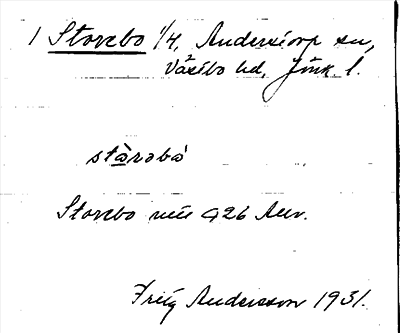 1 Storebo 1/4, Anderstorp sn,
Västbo hd, Jönk. l.
stàrabå
Storebo 926 Anv.
Fritz Andersson 1931.